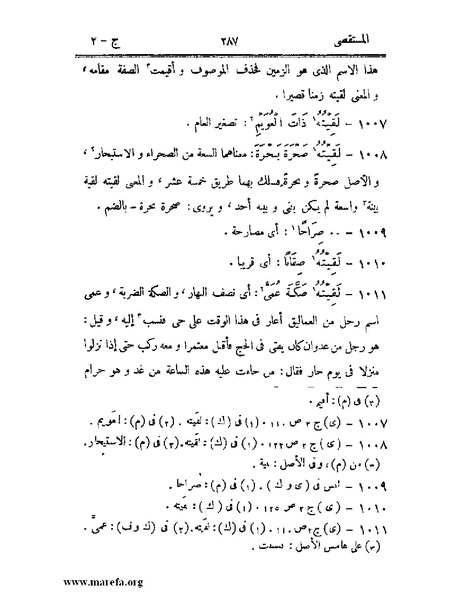 المستقصى ٢٨٧ ج - ٢
هذا الاسم الذى هو الزمين فحذف الموصوف و أقيمت٣ الصفة مقامه ،
و المعنى لقيته زمنا قصيرا .
١٠٠٧ - لَقِيتُهُ١ ذَاتَ الْعُوَيْمِ٢ : تصغير العام .
١٠٠٨ - لَقِيتُهُ١ صَحْرَةَ بَحْرَةَ : معناهما السعة من الصحراء و الاستبحار٢ ،
و الأصل صحرة و بحرة فسلك بهما طريق خمسة عشر ، و المعنى لقيته لقية
بينة٣ واسعة لم يكن بينى و بينه أحد ، و يروى : صحرة بحرة - بالضم .
١٠٠٩ - ٠٠ صِرَاحًا١ : أى مصارحة .
١٠١٠ - لَقِيتُهُ١ صِقَابًا : أى قريبا .
١٠١١ - لَقِيتُهُ١ صَكَّةَ عُمَىٍّ٢ : أى نصف النهار ، و الصكة الضربة ، و عمى
اسم رجل من العماليق أغار فى هذا الوقت على حى فنسب٣ إليه ، و قيل :
هو رجل من عدوان كان يفتى فى الحج فأقبل معتمرا و معه ركب حتى إذا نزلوا
منزلا فى يوم حار فقال : من جاءت عليه هذه الساعة من غد و هو حرام
(٣) فى (م) : أقيم .
١٠٠٧ - (ى) ج ٢ ص ١١٠ ٠ (١) فى (ك) : لقيته . (٢) فى (م) :
١٠٠٨ - (ى) ج ٢ ص ١٢٢ ٠ (١) فى (ك) : لقيته . (٢) فى (م) : الاستبحار .
(٣) من (م) ، و فى الأصل :
١٠٠٩ - ليس فى (ى و ك) . (١) فى (م) : صُراحا .
١٠١٠ - (ى) ج ٢ ص ١٢٥ ٠ (١) فى (ك) : لقيته .
١٠١١ - (ى) ج ٢ ص ١١٠ ٠ (١) فى (ك) : لقيته . (٢) فى (ك و ف) : عمىّ .
(٣) على هامش الأصل :
www.marefa.org